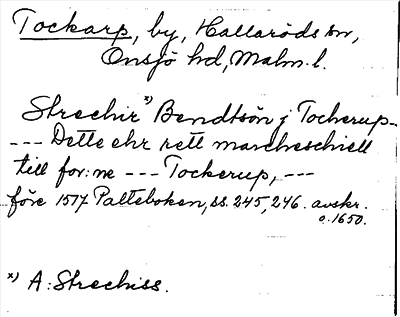 Tockarp, by, Hallaröds sn,
Onsjö hd, Malm. l.
Strechir*) Bendtsön j Tocherup -
--- Dette ehr rett marcheschiell
till for:ne --- Tockerup, ---
före 1517 Palteboken, ss. 245, 246. avskr.
o. 1650.
*) A: Strechiss.